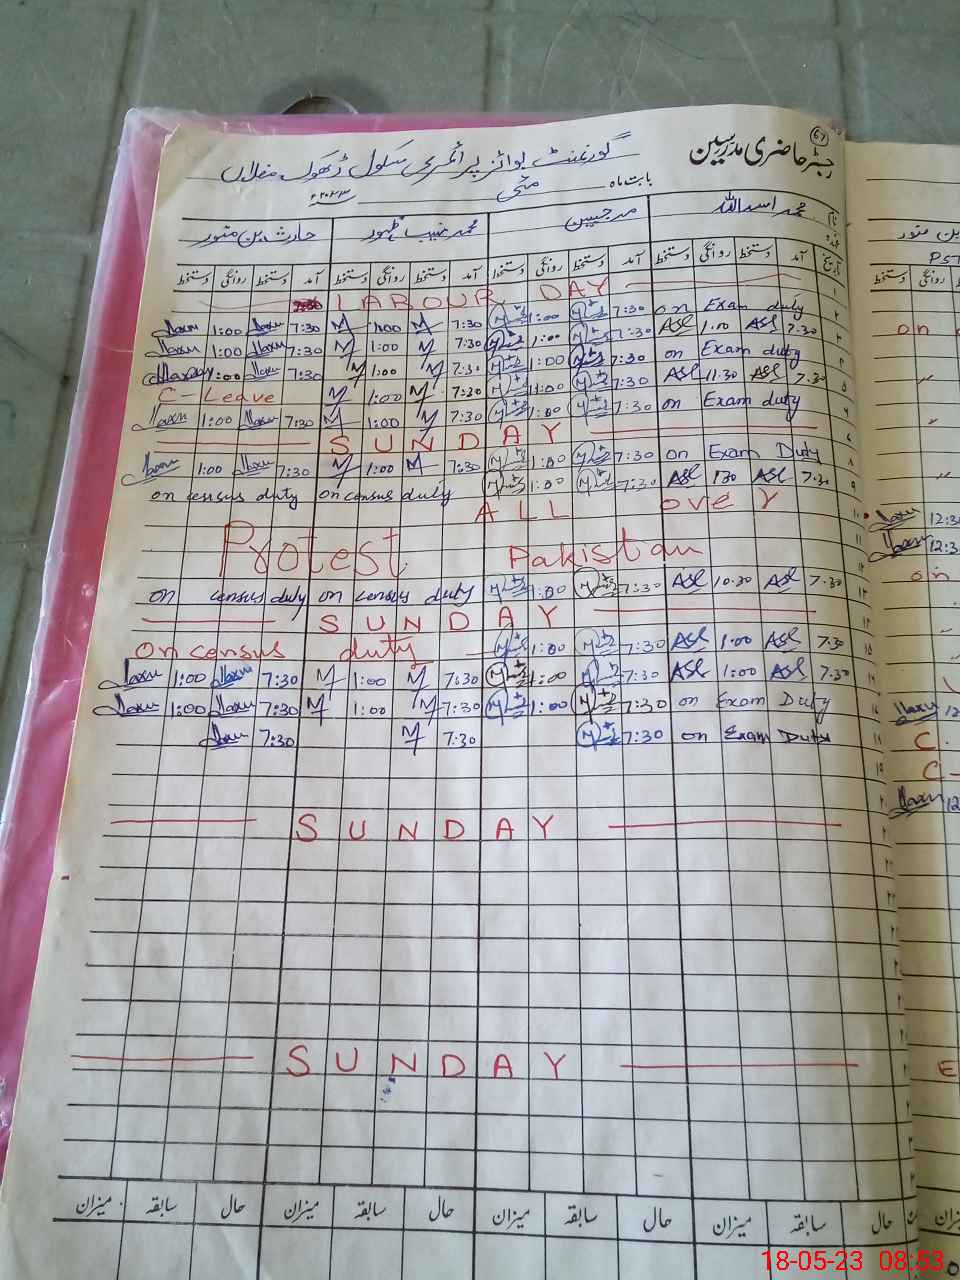 67
رجسٹر حاضری مدرسین
گورنمنٹ بوائز پرائمری سکول ڈھوک مغلاں
بابت ماہ مئی ۲۰۲۳ء
محمد اسداللہ مہ جبیں محمد منیب ظہور حارث بن منور
تاریخ آمد دستخط روانگی دستخط آمد دستخط روانگی دستخط آمد دستخط روانگی دستخط آمد دستخط روانگی دستخط
7:30 LABOUR DAY
1:00 7:30 M 1:00 M 7:30 1:00 7:30 on Exam duty
1:00 7:30 M 1:00 M 7:30 1:00 7:30 ASL 1:00 ASL 7.30
1:00 7:30 M 1:00 M 7:30 1:00 7:30 on Exam duty
C-Leave M 1:00 M 7:30 11:00 7:30 ASL 11.30 ASL 7.30
1:00 7:30 M 1:00 M 7:30 1:00 7:30 on Exam duty
SUNDAY
1:00 7:30 M 1:00 M 7:30 1:00 7:30 on Exam Duty
on census duty on census duty 1:00 7:30 ASL 1 30 ASL 7.30
ALL oveY
Protest Pakistan
on census duty on census duty 1:00 7:30 ASL 10.30 ASL 7.30
SUNDAY
on census duty 1:00 7:30 ASL 1:00 ASL 7.30
1:00 7:30 M 1:00 M 7:30 1:00 7:30 ASL 1:00 ASL 7.30
1:00 7:30 M 1:00 M 7:30 1:00 7:30 on Exam Duty
7:30 M 7:30 7:30 on Exam Duty
SUNDAY
SUNDAY
حال سابقہ میزان حال سابقہ میزان حال سابقہ میزان حال سابقہ میزان
بن منور
PST
دستخط روانگی
on
12:3
12:3
on
12
C.
C-
12
E
میزان
18-05-23 08:53